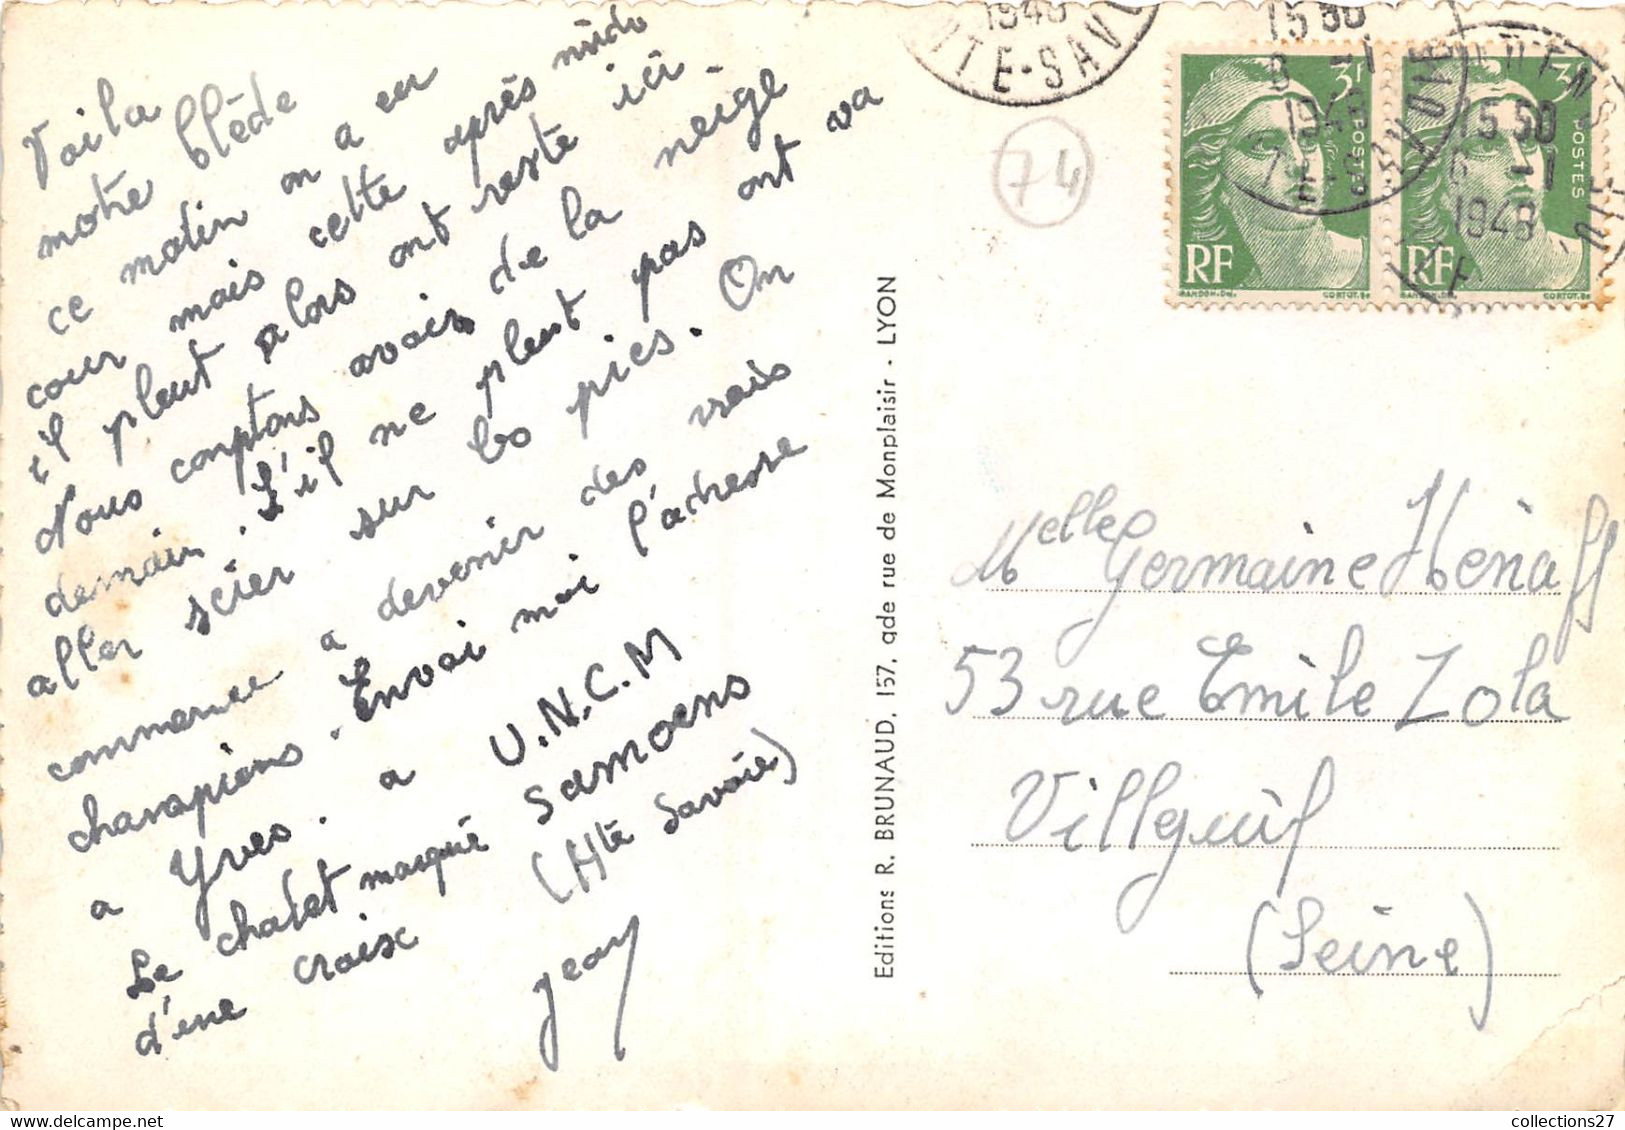 Voila
notre blède
ce matin on a eu
cour mais cette après midi
il pleut alors ont reste ici.
Nous comptons avoir de la neige
demain. S'il ne pleut pas ont va
aller scier sur les pics. On
commence a devenir des vrais
champions. Envoi moi l'adresse
a Yves. a U.N.C.M
Le chalet marqué Samoens
d'une croix (Hte Savoie)
Jean
Editions R. BRUNAUD, 157, gde rue de Monplaisir - LYON
74
1948
TE-SAV
15 50
6 -1
1948
SAVOIE
15 50
6 -1
1948
3F
POSTES
RF
GANDON.DEL.
CORTOT.SC
3F
POSTES
RF
CORTOT.SC
Melles Germaine Hénaff
53 rue Emile Zola
Villejuif
(Seine)
collections27